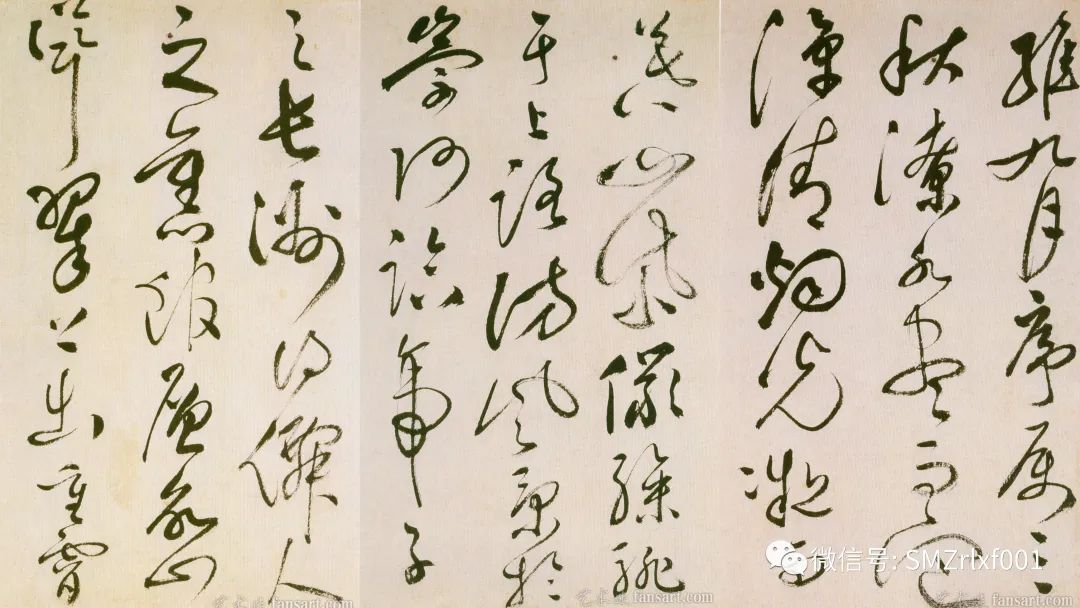 維九月序屬三
秋潦水盡而寒
潭清烟光凝而
暮山紫儼驂騑
于上路訪風景於
崇阿臨帝子
之長洲得僊人
之舊館層巒
聳翠上出重霄
微信号: SMZrlxf001
fansart.com
fansart.com
fansart.com